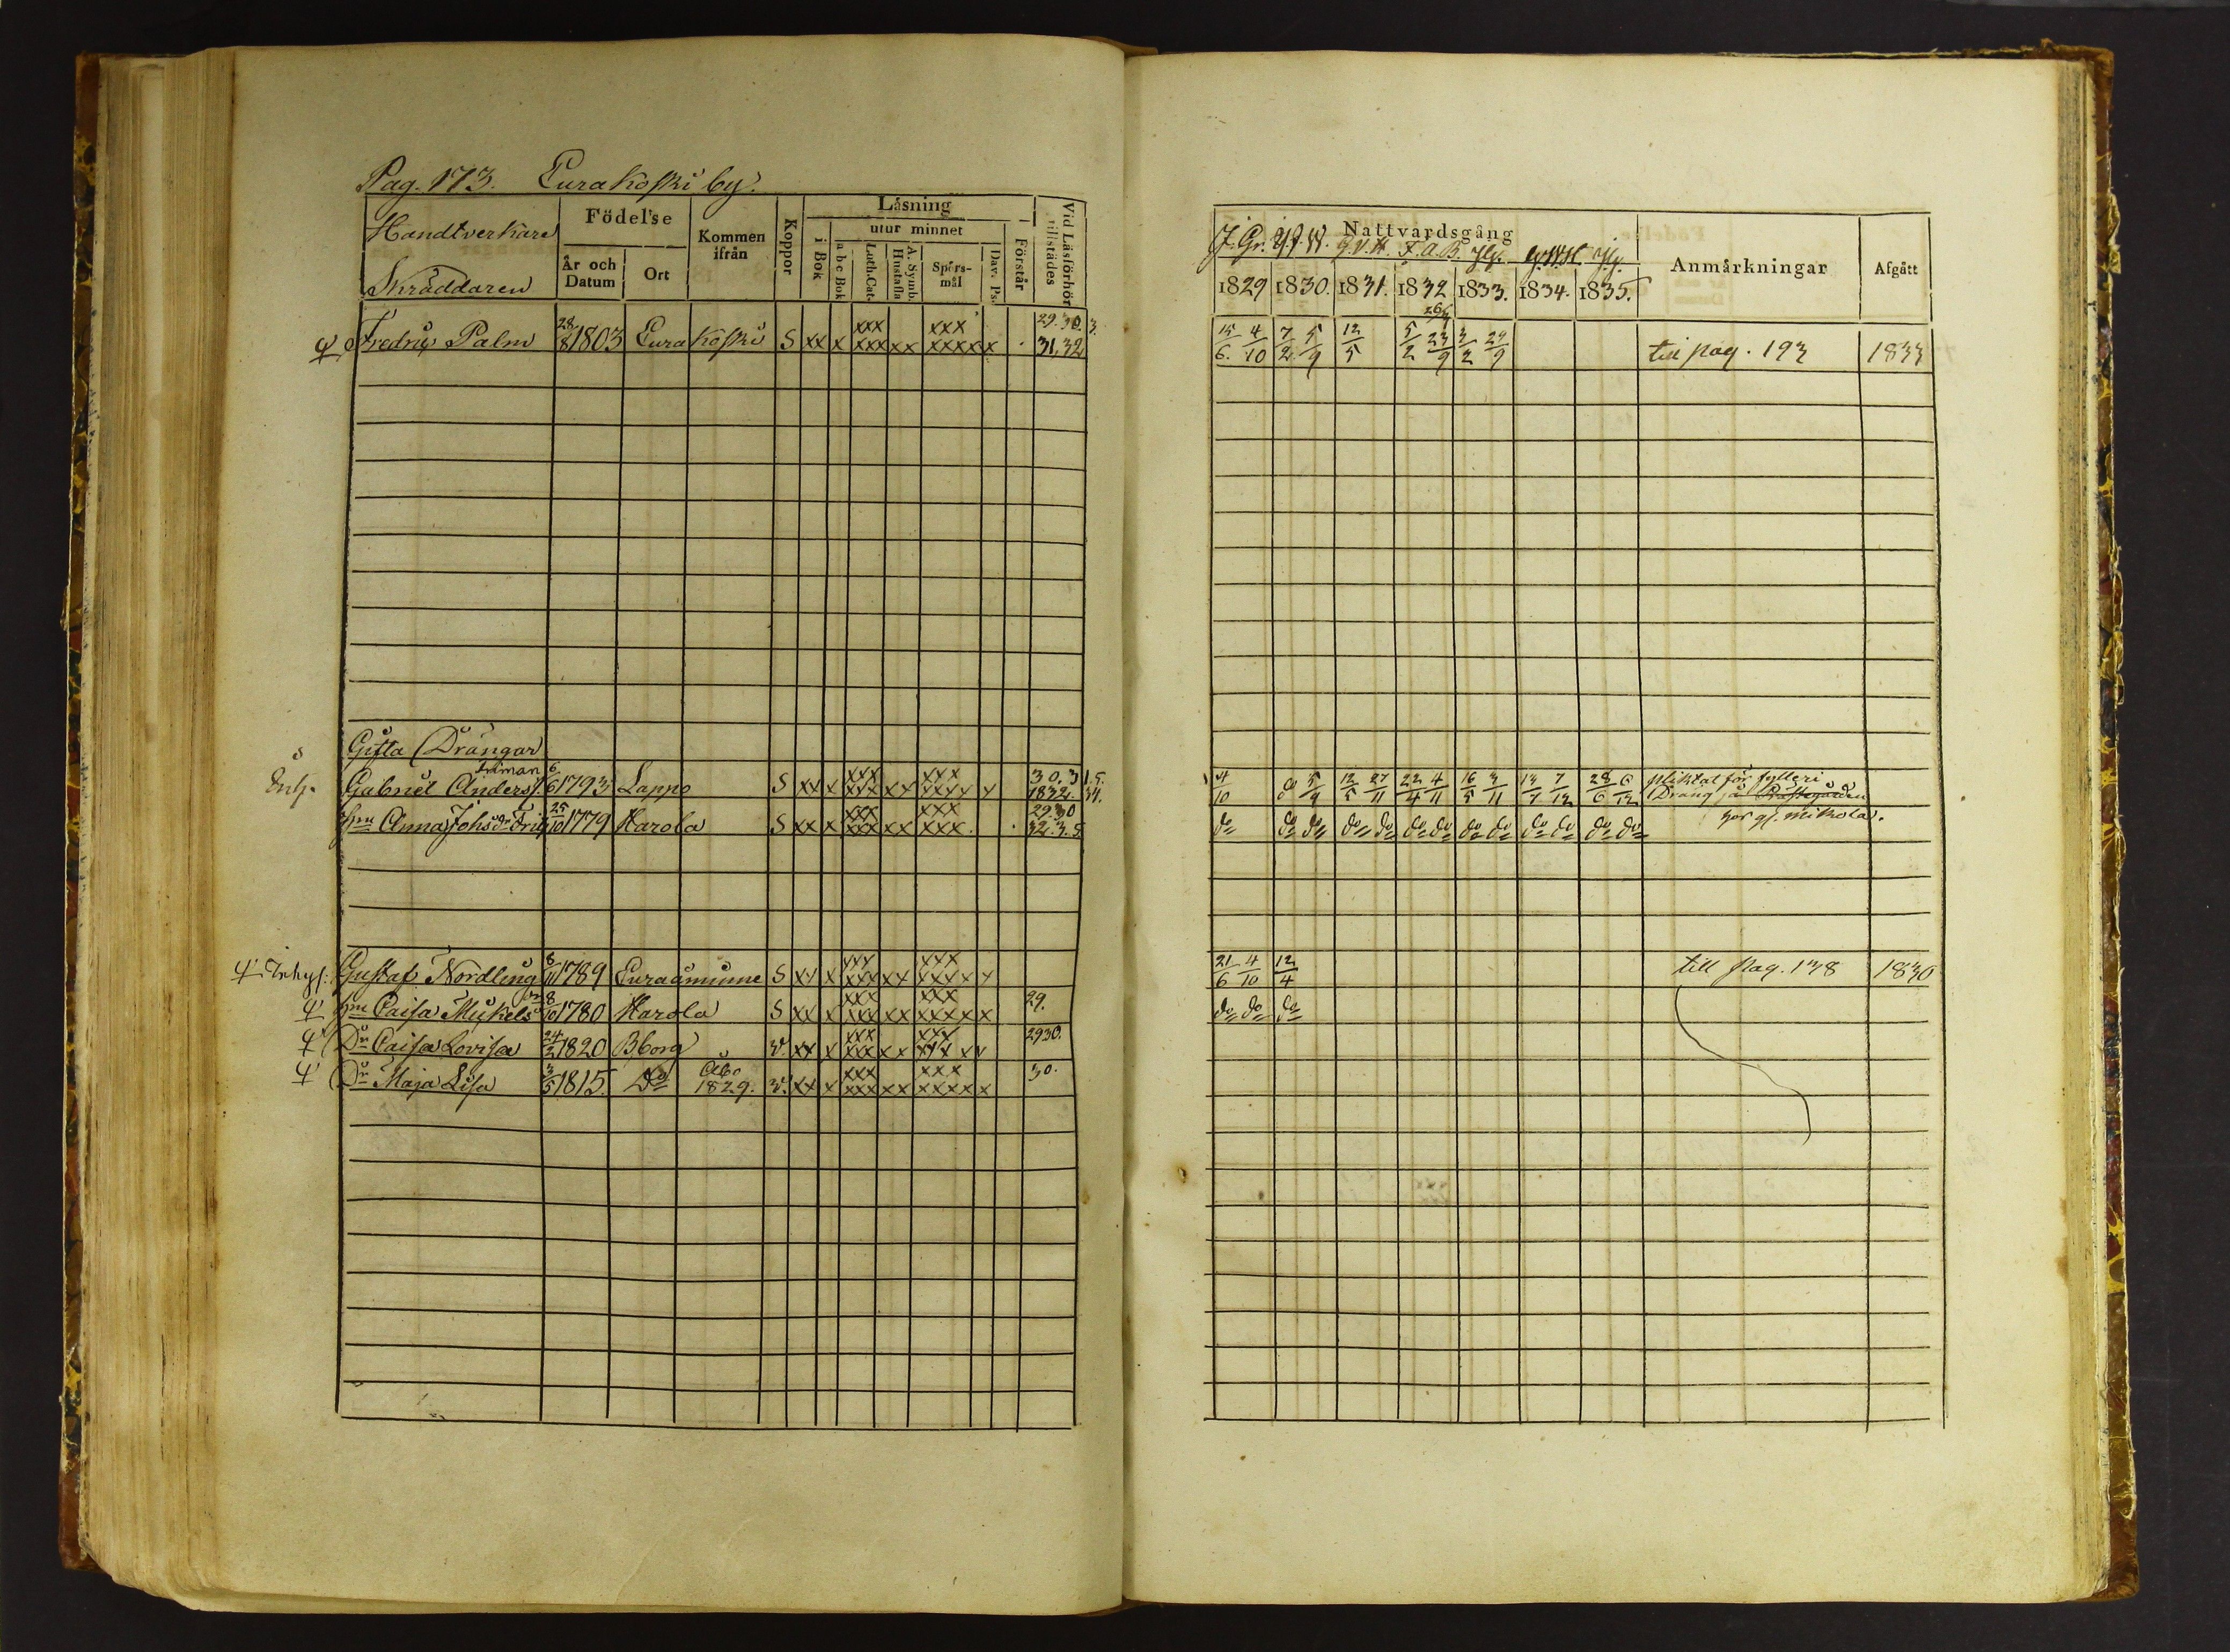 Pag. 173. Eurakoski by.
Handtverkare
Skräddaren
Födelse
År och Datum
Ort
Kommen ifrån
Koppor
Läsning
i Bok
utur minnet
a b c Bok
Luth. Cat.
A. Symb. Hustafla
Spörs-mål
Dav. Ps.
Förstår
Vid Läsförhör tillstädes
Fredric Palm 28/8 1803 Eurakoski S xx x xxx xxx xx xxx xxxx x 29. 30. 3. 31. 32
Gifta Drängar
Inh. Gabriel Anders s. 6/6 1793 Lappo S xx x xxx xxx xx xxx xxxx x 30. 31. 5. 1832. 34.
Hru Anna Johsdr 25/10 1779 Harola S xx x xxx xxx xx xxx xxx 29. 30 32. 3. 5.
Inhys: Gustaf Nordling 8/11 1789 Euraåminne S xx x xxx xxx xx xxx xxxx x
Hru Caisa Mickelsdr 8/10 1780 Harola S xx x xxx xxx xx xxx xxxx x 29.
Dr Caisa Lovisa 24/2 1820 Bborg v. xx x xxx xxx xx xxx xxx xx 29 30.
Dr Maja Lisa 3/5 1815. Do Åbo 1829. v. xx x xxx xxx xx xxx xxxx x 30.
Nattvardsgång
J. Gr. F. A. B.
1829 1830. 1831. 1832 1833. 1834. 1835.
Anmärkningar
Afgått
15/6. 4/10 7/2 5/9 12/5 5/2 23/9 3/2 29/9 till pag. 193 1833
4/10 5/9 12/5 27/11 22/4 4/11 16/5 3/11 13/4 7/12 28/6 6/12 pliktat för fylleri
Dräng på Prästegården
hos gf. Mikola.
do do do do do do do do do do do do do
21/6 4/10 12/4 till pag. 138 1830
do do do